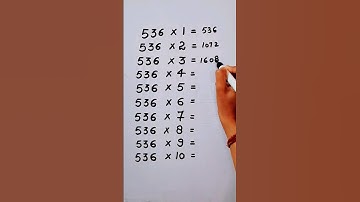 536 × 1 = 536
536 × 2 = 1072
536 × 3 = 1608
536 × 4 =
536 × 5 =
536 × 6 =
536 × 7 =
536 × 8 =
536 × 9 =
536 × 10 =